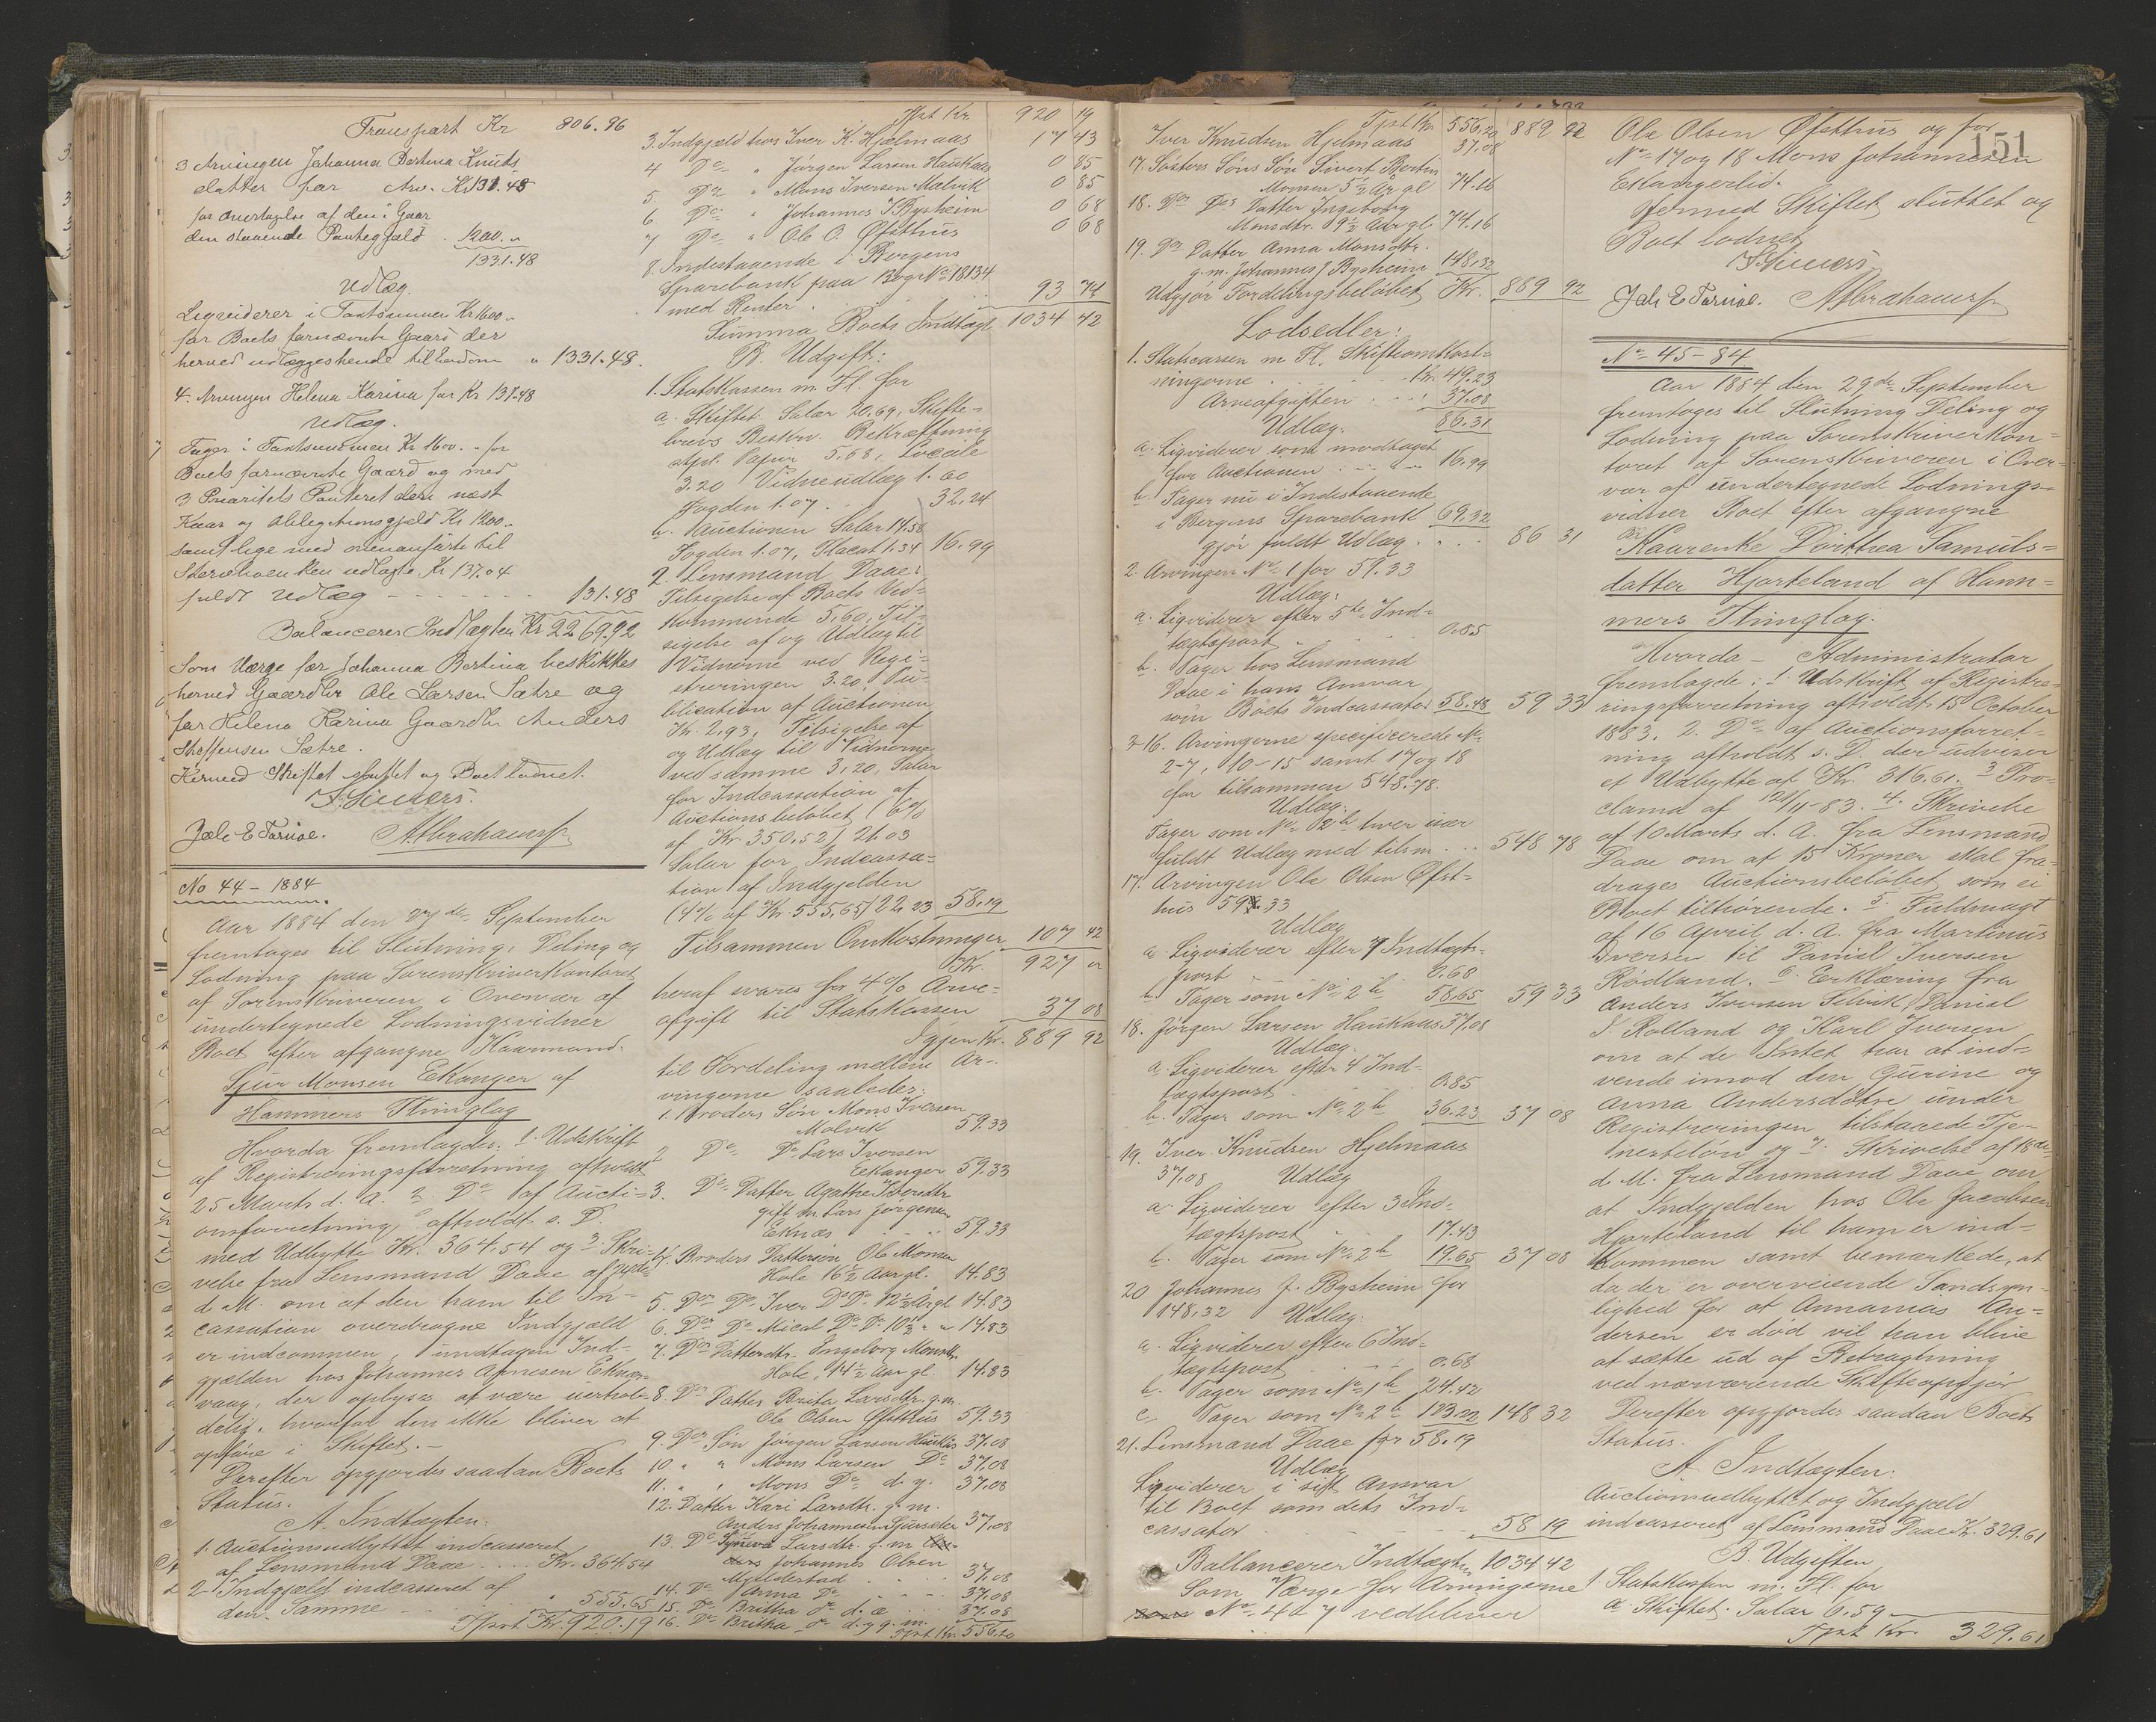 Transport Kr 806.96
3 Arvingen Johanna Bertina Knuts
datter for Arv. Kr 131.48
for overtagelse af den i Gaar
den staaende Pantegjæld . 1200. "
1331.48
Udlæg.
Liqviderer i Taxtsummen Kr 1600 "
for Boets fornævnte Gaard der
herved udlægges hende til Eiendom " 1331.48.
4. Arvingen Helena Karina for Kr 131.48
Udlæg.
Tager i Taxtsummen Kr 1600. " for
Boets fornævnte Gaard og med
3 Prioritets Panteret den næst
Kaar og Obligationsgjæld Kr 1200 "
samt lige med ovenanførte til
udlagte Kr 137.04
fuldt Udlæg - - - - - - 131.48
Balancerer Indtægten Kr 2269.92
Som Værge for Johanna Bertina beskikkes
herved Gaardbr Ole Larsen Sætre og
for Helena Karina Gaardbr Anders
Steffensen Sætre.
Hermed Skiftet sluttet og Boet lodnet.
Joh E Tarvae. A Abrahamsen
No 44 - 1884
Aar 1884 den 27de September
fremtoges til Slutning, Deling og
Lodning paa Sorenskriverkontoret
af Sorenskriveren i Overvær af
undertegnede Lodningsvidner
Boet efter afgangne Kaarmand
Sjur Monsen Ekanger af
Hammers Thinglag
Hvorda fremlagdes: 1. Udskrift
af Registreringsforretning afholdt
25 Marts d. A. 2. Do af Aucti-
onsforretning afholdt s. D.
med Udbytte Kr. 364.54 og 3. Skri-
velse fra Lensmand Daae af
d. M. om at den ham til In-
cassation overdragne Indgjæld
er indcommen, undtagen Ind-
gjælden hos Johannes Arnesen Eknes-
vaag, der oplyses at være uerhol-
delig, hvorfor den ikke bliver at
opføre i Skiftet. -
Derefter opgjordes saadan Boets
Status.
A. Indtægten:
1. Auctionsudbyttet indcasseret
af Lensmand Daae .... Kr. 364.54
2 Indgjæld indcasseret af
den Samme - - - " 555.65
Tpst Kr. 920.19
Tpst Kr. 920 19
3. Indgjæld hos Iver K. Hjelmaas 17 43
4 Do " Jørgen Larsen Haukaas 0 85
5. Do " Mons Iversen Malvik 0 85
6 Do " Johannes J Bysheim 0 68
7 Do " Ole O. Øfsthus 0 68
8. Indestaaende i Bergens
Sparebank paa Bog No 18134
med Renter . . . 93 74
Summa Boets Indtægt 1034 42
B. Udgift:
1. Statskassen m. Fl. for
a. Skiftet: Salær 20.69, Skifte-
brevs Beskr. Bekræftning
stpl. Papir 5.68, Locale
3.20 Vidneudlæg 1.60
Fogden 1.07 . . 32.24
b. Auctionen Salær 14.58
Fogden 1.07, Placat 1.34 16.99
2. Lensmand Daae:
Tilsigelse af Boets Ved-
kommende 5,60, Til-
sigelse af og Udlæg til
Vidnerne ved Regi-
streringen 3.20, Pu-
blication af Auctionen
Kr. 2,93, Tilsigelse af
og Udlæg til Vidnerne
ved samme 3,20, Salær
for Indcassation af
Auctionsbeløbet (6%
af Kr. 350.52) 21.03
Salær for Indcassa-
tion af Indgjelden
(4% af Kr. 555,65) 22.23 58.19
Tilsammen Omkostninger 107 42
Kr. 927 "
heraf svares for 4% Arve-
afgift til Statskassen 37 08
Igjen Kr. 889 92
til Fordeling mellem Ar-
vingerne saaledes:
1. Broders Søn Mons Iversen
Malvik 59.33
2 Do Do Lars Iversen
Ekanger 59.33
3. Do Datter Agathe Iversdtr
gift m. Lars Jørgensen
Eknæs . . . 59.33
4. Broders Dattersøn Ole Monsen
Hole 16½ Aar gl. 14.83
5. Do Do Iver Do Do 12½ Ar gl 14.83
6. Do Do Mical Do Do 10½ " " 14.83
7. Do Datterdtr. Ingeborg Monsdtr.
Hole, 14½ Aar gl. 14.83
8. Do Datter Brita Larsdtr. g. m.
Ole Olsen Øfsthus 59.33
9. Do Søn Jørgen Larsen Haukås 37.08
10. " " Mons Larsen Do 37.08
11. " " Mons Do d. y. 37.08
12. Datter Kari Larsdtr. g. m.
Anders Johannesen Sjursæter 37,08
13. Do Synneva Larsdtr. g. m.
Johannes Olsen
Mjeldestad . . . 37.08
14. Do Anna Do . . . 37.08
15. Do Britha Do d. æ . . 37.08
16. Do Britha Do d. y g. m.
Tpst Kr. 556.20
Tpst Kr. 556.20 889 92
Iver Knudsen Hjelmaas 37.08
17. Søsters Søns Søn Sivert Bertin
Monsen 5½ Ar gl 74.16
18. Do Do Datter Ingeborg
Monsdtr. 9½ Aar gl 74.16
19. Do Datter Anna Monsdtr.
g. m. Johannes J Bysheim 148,32
Udgjør Fordelingsbeløbet Kr. 889 92
Lodsedler:
1. Statscassen m Fl. Skifteomkost-
ningerne . . . Kr. 49.23
Arveafgiften . . . 37.08
86.31
Udlæg:
a. Liqviderer som modtaget
for Auctionen . . " 16.99
b. Tager nu i Indestaaende
i Bergens Sparebank 69.32
gjør fuldt Udlæg . . . 86 31
2. Arvingen No 1 for 59.33
Udlæg:
a. Liqviderer efter 5te Ind-
tægtspost . . . 0.85
b. Tager hos Lensmand
Daae i hans Ansvar
som Boets Indcassator 58.48 59 33
3-16. Arvingerne specificerede No
2-7, 10-15 samt 17 og 18
for tilsammen 548.78.
Udlæg:
Tager som No 2 b hver især
fuldt Udlæg med tilsm. . . 548 78
17. Arvingen Ole Olsen Øfst-
hus 59.33
Udlæg
a. Liqviderer efter 7 Indtægts-
post . . 0.68
b. Tager som No 2 b 58.65 59 33
18. Jørgen Larsen Haukaas 37.08
Udlæg.
a. Liqviderer efter 4 Ind-
tægtspost . . 0.85
b. Tager som No 2 b 36.23 37 08
19. Iver Knudsen Hjelmaas
37,08 Udlæg
a. Liqviderer efter 3 Ind-
tægtspost . . 17.43
b. Tager som No 2 b 19.65 37 08
20 Johannes J. Bysheim for
148.32 Udlæg:
a. Liqviderer efter 6 Ind-
tægtspost . . 0.68
b. Tager som No 1 b 24.42
c. Tager som No 2 b 123.22 148 32
21. Lensmand Daae for 58.19
Udlæg
Liqviderer i sit Ansvar
til Boet som dets Ind-
cassator . . . 58 19
Ballancerer Indtægten 1034 42
Som Værge for Arvingerne
No 4 à 7 vedbliver
151
Ole Olsen Øfsthus og for
No 17 og 18 Mons Johannesen
Ekangerlid.
Hermed Skiftet sluttet og
Boet lodnet
Joh E Tarvae. A Abrahamsen
No 45-84
Aar 1884 den 29de September
fremtoges til Slutning Deling og
Lodning paa Sorenskriverkon-
toret af Sorenskriveren i Over-
vær af undertegnede Lodnings-
vidner Boet efter afgangne
Kaurenke Dorthea Samuls-
datter Hjorteland af Ham-
mers Thinglag.
Hvorda - Administrator
fremlagde: 1. Udskrift af Registre-
ringsforretning afholdt 15 October
1883. 2. Do af Auctionsforret-
ning afholdt s. D. der udviser
et Udbytte af Kr. 316.61. 3 Pro-
clama af 11-83. 4. Skrivelse
af 10 Marts d. A. fra Lensmand
Daae om at 15 Kroner skal fra-
drages Auctionsbeløbet som ei
Boet tilhørende. 5. Fuldmagt
af 16 April d. A. fra Martinus
Iversen til Daniel Iversen
Rødland. 6. Erklæring fra
Anders Iversen Selvik, Daniel
I. Rolland og Karl Iversen
om at de Intet har at ind-
vende imod den Gurine og
Anna Andersdøtre under
Registreringen tilstaaede Tje-
nesteløn og 7. Skrivelse af 18de
d. M. fra Lensmand Daae om
at Indgjelden hos Ole Jacobsen
Hjorteland til ham er ind-
kommen samt bemærkede, at
da der er overveiende Sandsyn-
lighed for at Annanias An-
dersen er død vil han blive
at sætte ud af Betragtning
ved nærværende Skifteopgjør
Derefter opgjordes saadan Boets
Status.
A. Indtægten:
Auctionsudbyttet og Indgjæld
indcasseret af Lensmand Daae Kr. 329.61
B. Udgiften
1 Statskassen m. Fl. for
a. Skiftet: Salær 6.59
Tpst Kr. 329.61